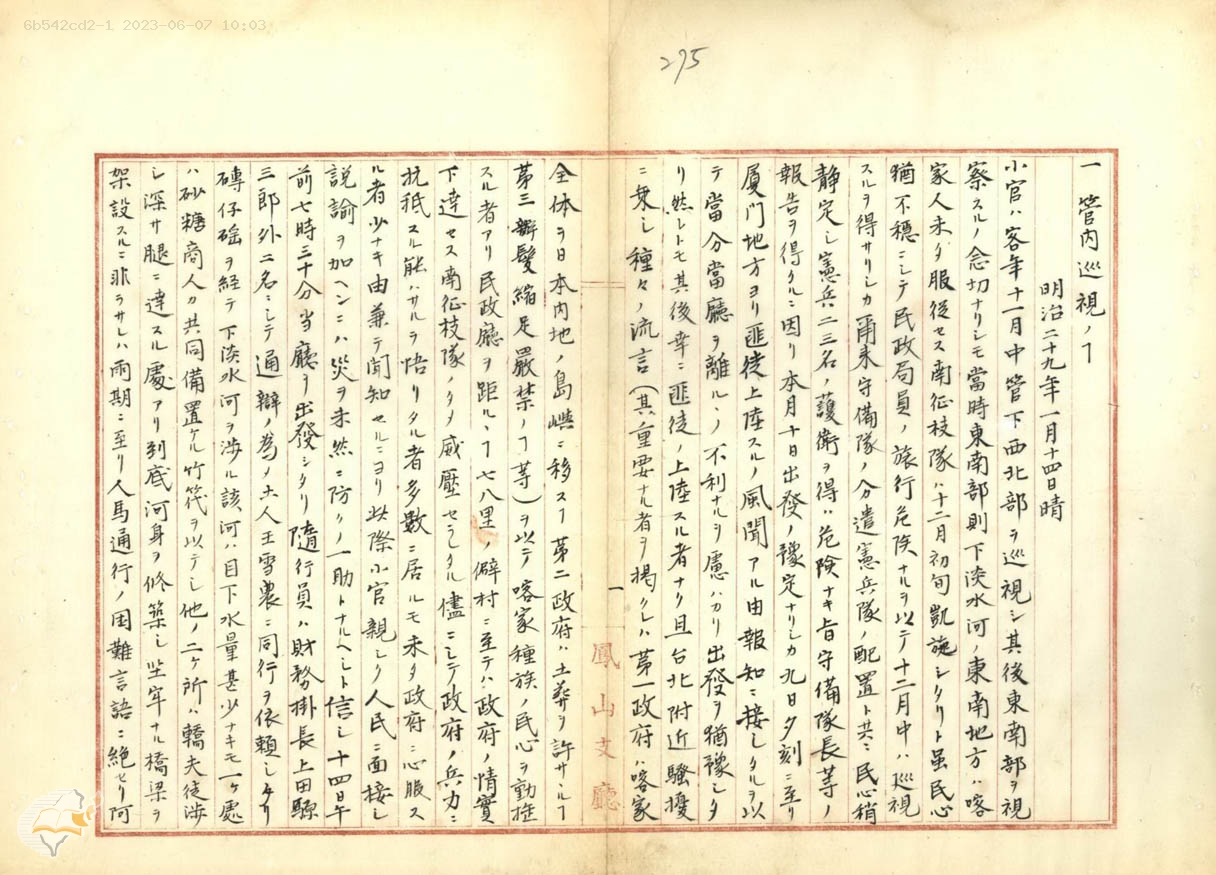 6b542cd2-1 2023-06-07 10:03
295
一 管内巡視ノヿ
明治二十九年一月十四日晴
小官ハ客年十一月中管下西北部ヲ巡視シ其後東南部ヲ視
察スルノ念切ナリシモ當時東南部則下淡水河ノ東南地方ハ喀
家人未タ服從セス南征枝隊ハ十二月初旬凱旋シタリト虽民心
猶不穩ニシテ民政局員ノ旅行危険ナルヲ以テ十二月中ハ巡視
スルヲ得サリシカ爾来守備隊ノ分遣憲兵隊ノ配置ト共ニ民心稍
静定シ憲兵二三名ノ護衛ヲ得ハ危険ナキ旨守備隊長等ノ
報告ヲ得タルニ因リ本月十日出發ノ豫定ナリシカ九日夕刻ニ至リ
厦门地方ヨリ匪徒上陸スルノ風聞アル由報知ニ接シタルヲ以
テ當分當廳ヲ離ルヽノ不利ナルヲ慮ハカリ出發ヲ猶豫シタ
リ然レトモ其後幸ニ匪徒ノ上陸スル者ナク且台北附近騒擾
ニ乗シ種々ノ流言(其重要ナル者ヲ掲クレハ第一政府ハ喀家
一
鳳山支廳
全体ヲ日本内地ノ島嶼ニ移スヿ第二政府ハ土葬ヲ許サヽルヿ
第三辮髮縮足嚴禁ノヿ等)ヲ以テ喀家種族ノ民心ヲ動揺
スル者アリ民政廳ヲ距ルヿ七八里ノ僻村ニ至テハ政府ノ情實
下達セス南征枝隊ノタメ威壓セラレタル儘ニシテ政府ノ兵力ニ
抗抵スル能ハサルヲ悟リタル者多數ニ居ルモ未タ政府ニ心服ス
ル者少ナキ由兼テ聞知セルニヨリ此際小官親シク人民ニ面接シ
説諭ヲ加ヘンニハ災ヲ未然ニ防クノ一助トナルヘシト信シ十四日午
前七時三十分当廳ヲ出發シタリ隨行員ハ財務掛長上田縣
三郎外二名ニシテ通辯ノ為メ土人王雪農ニ同行ヲ依頼シタリ
磚仔磘ヲ経テ下淡水河ヲ渉ル該河ハ目下水量甚少ナキモ一ヶ處
ハ砂糖商人カ共同備置ケル竹筏ヲ以テシ他ノ二ヶ所ハ轎夫徒渉
シ深サ腿ニ達スル處アリ到底河身ヲ修築シ坚牢ナル橋梁ヲ
架設スルニ非ラサレハ雨期ニ至リ人馬通行ノ困難言語ニ絶セリ阿